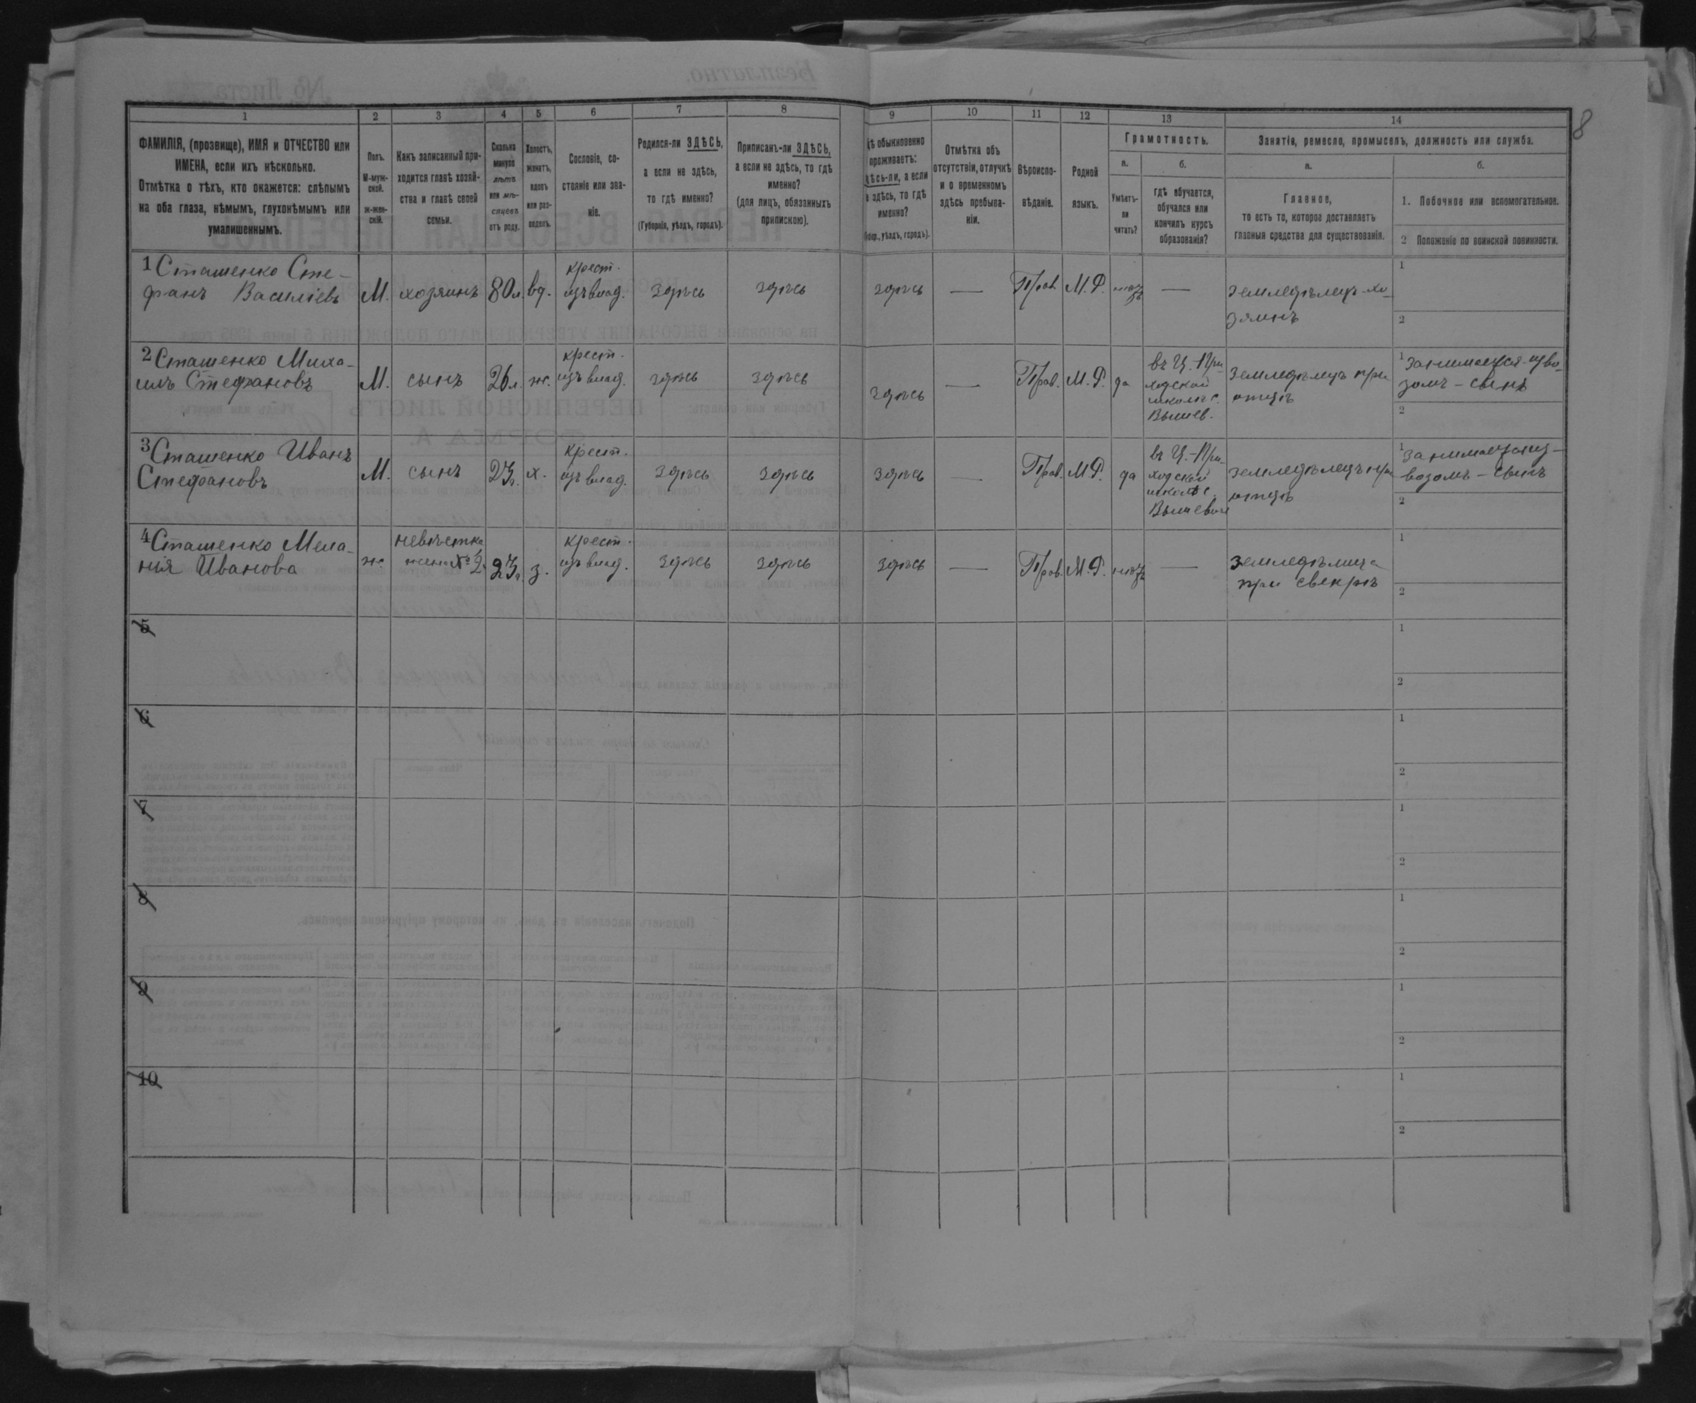 8
1
2
3
4
5
6
7
8
9
10
11
12
13
14
ФАМИЛІЯ, (прозвище), ИМЯ и ОТЧЕСТВО или
ИМЕНА, если ихъ нѣсколько.
Отмѣтка о тѣхъ, кто окажется: слѣпымъ
на оба глаза, нѣмымъ, глухонѣмымъ или
умалишеннымъ.
Полъ.
М-муж-
ской.
ж-жен-
скій.
Какъ записанный при-
ходится главѣ хозяй-
ства и главѣ своей
семьи.
Сколько
минуло
лѣтъ
или мѣ-
сяцевъ
отъ роду.
Холостъ,
женатъ,
вдовъ
или раз-
веденъ.
Сословіе, со-
стояніе или зва-
ніе.
Родился-ли ЗДѢСЬ,
а если не здѣсь,
то гдѣ именно?
(Губернія, уѣздъ, городъ).
Приписанъ-ли ЗДѢСЬ,
а если не здѣсь, то гдѣ
именно?
(для лицъ, обязанныхъ
припискою).
обыкновенно
проживаетъ:
здѣсь-ли, а если
здѣсь, то гдѣ
именно?
уѣздъ, городъ).
Отмѣтка объ
отсутствіи, отлучкѣ
и о временномъ
здѣсь пребыва-
ніи.
Вѣроиспо-
вѣданіе.
Родной
языкъ.
Грамотность.
а.
Умѣетъ-
ли
читать?
б.
гдѣ обучается,
обучался или
кончилъ курсъ
образованія?
Занятіе, ремесло, промыселъ, должность или служба.
а.
Главное,
то есть то, которое доставляетъ
главныя средства для существованія.
б.
1. Побочное или вспомогательное.
2 Положеніе по воинской повинности.
1 Сташенко Сте-
фанъ Василіевъ
М.
хозяинъ
80 л.
вд.
крест.
изъ влад.
здѣсь
здѣсь
здѣсь
—
Прав.
М.Р.
нѣтъ
—
земледѣлецъ хо-
зяинъ
1
2
2 Сташенко Миха-
илъ Стефановъ
М.
сынъ
26 л.
ж.
крест.
изъ влад.
здѣсь
здѣсь
здѣсь
—
Прав.
М.Р.
да
въ Ц.-При
ходской
школѣ с.
земледѣлецъ при
отцѣ
1
занимается изво-
зомъ –
2
3 Сташенко Иванъ
Стефановъ
М.
сынъ
23 л.
х.
крест.
изъ влад.
здѣсь
здѣсь
здѣсь
—
Прав.
М.Р.
да
въ Ц.-При
ходской
школѣ с.
земледѣлецъ при
отцѣ
1
занимается из-
возомъ –
2
4 Сташенко Мела-
нія Иванова
ж.
невѣстка
жена № 2.
23 л.
з.
крест.
изъ влад.
здѣсь
здѣсь
здѣсь
—
Прав.
М.Р.
нѣтъ
—
земледѣлица
при свекрѣ
1
2
5
1
2
6
1
2
7
1
2
8
1
2
9
1
2
10
1
2